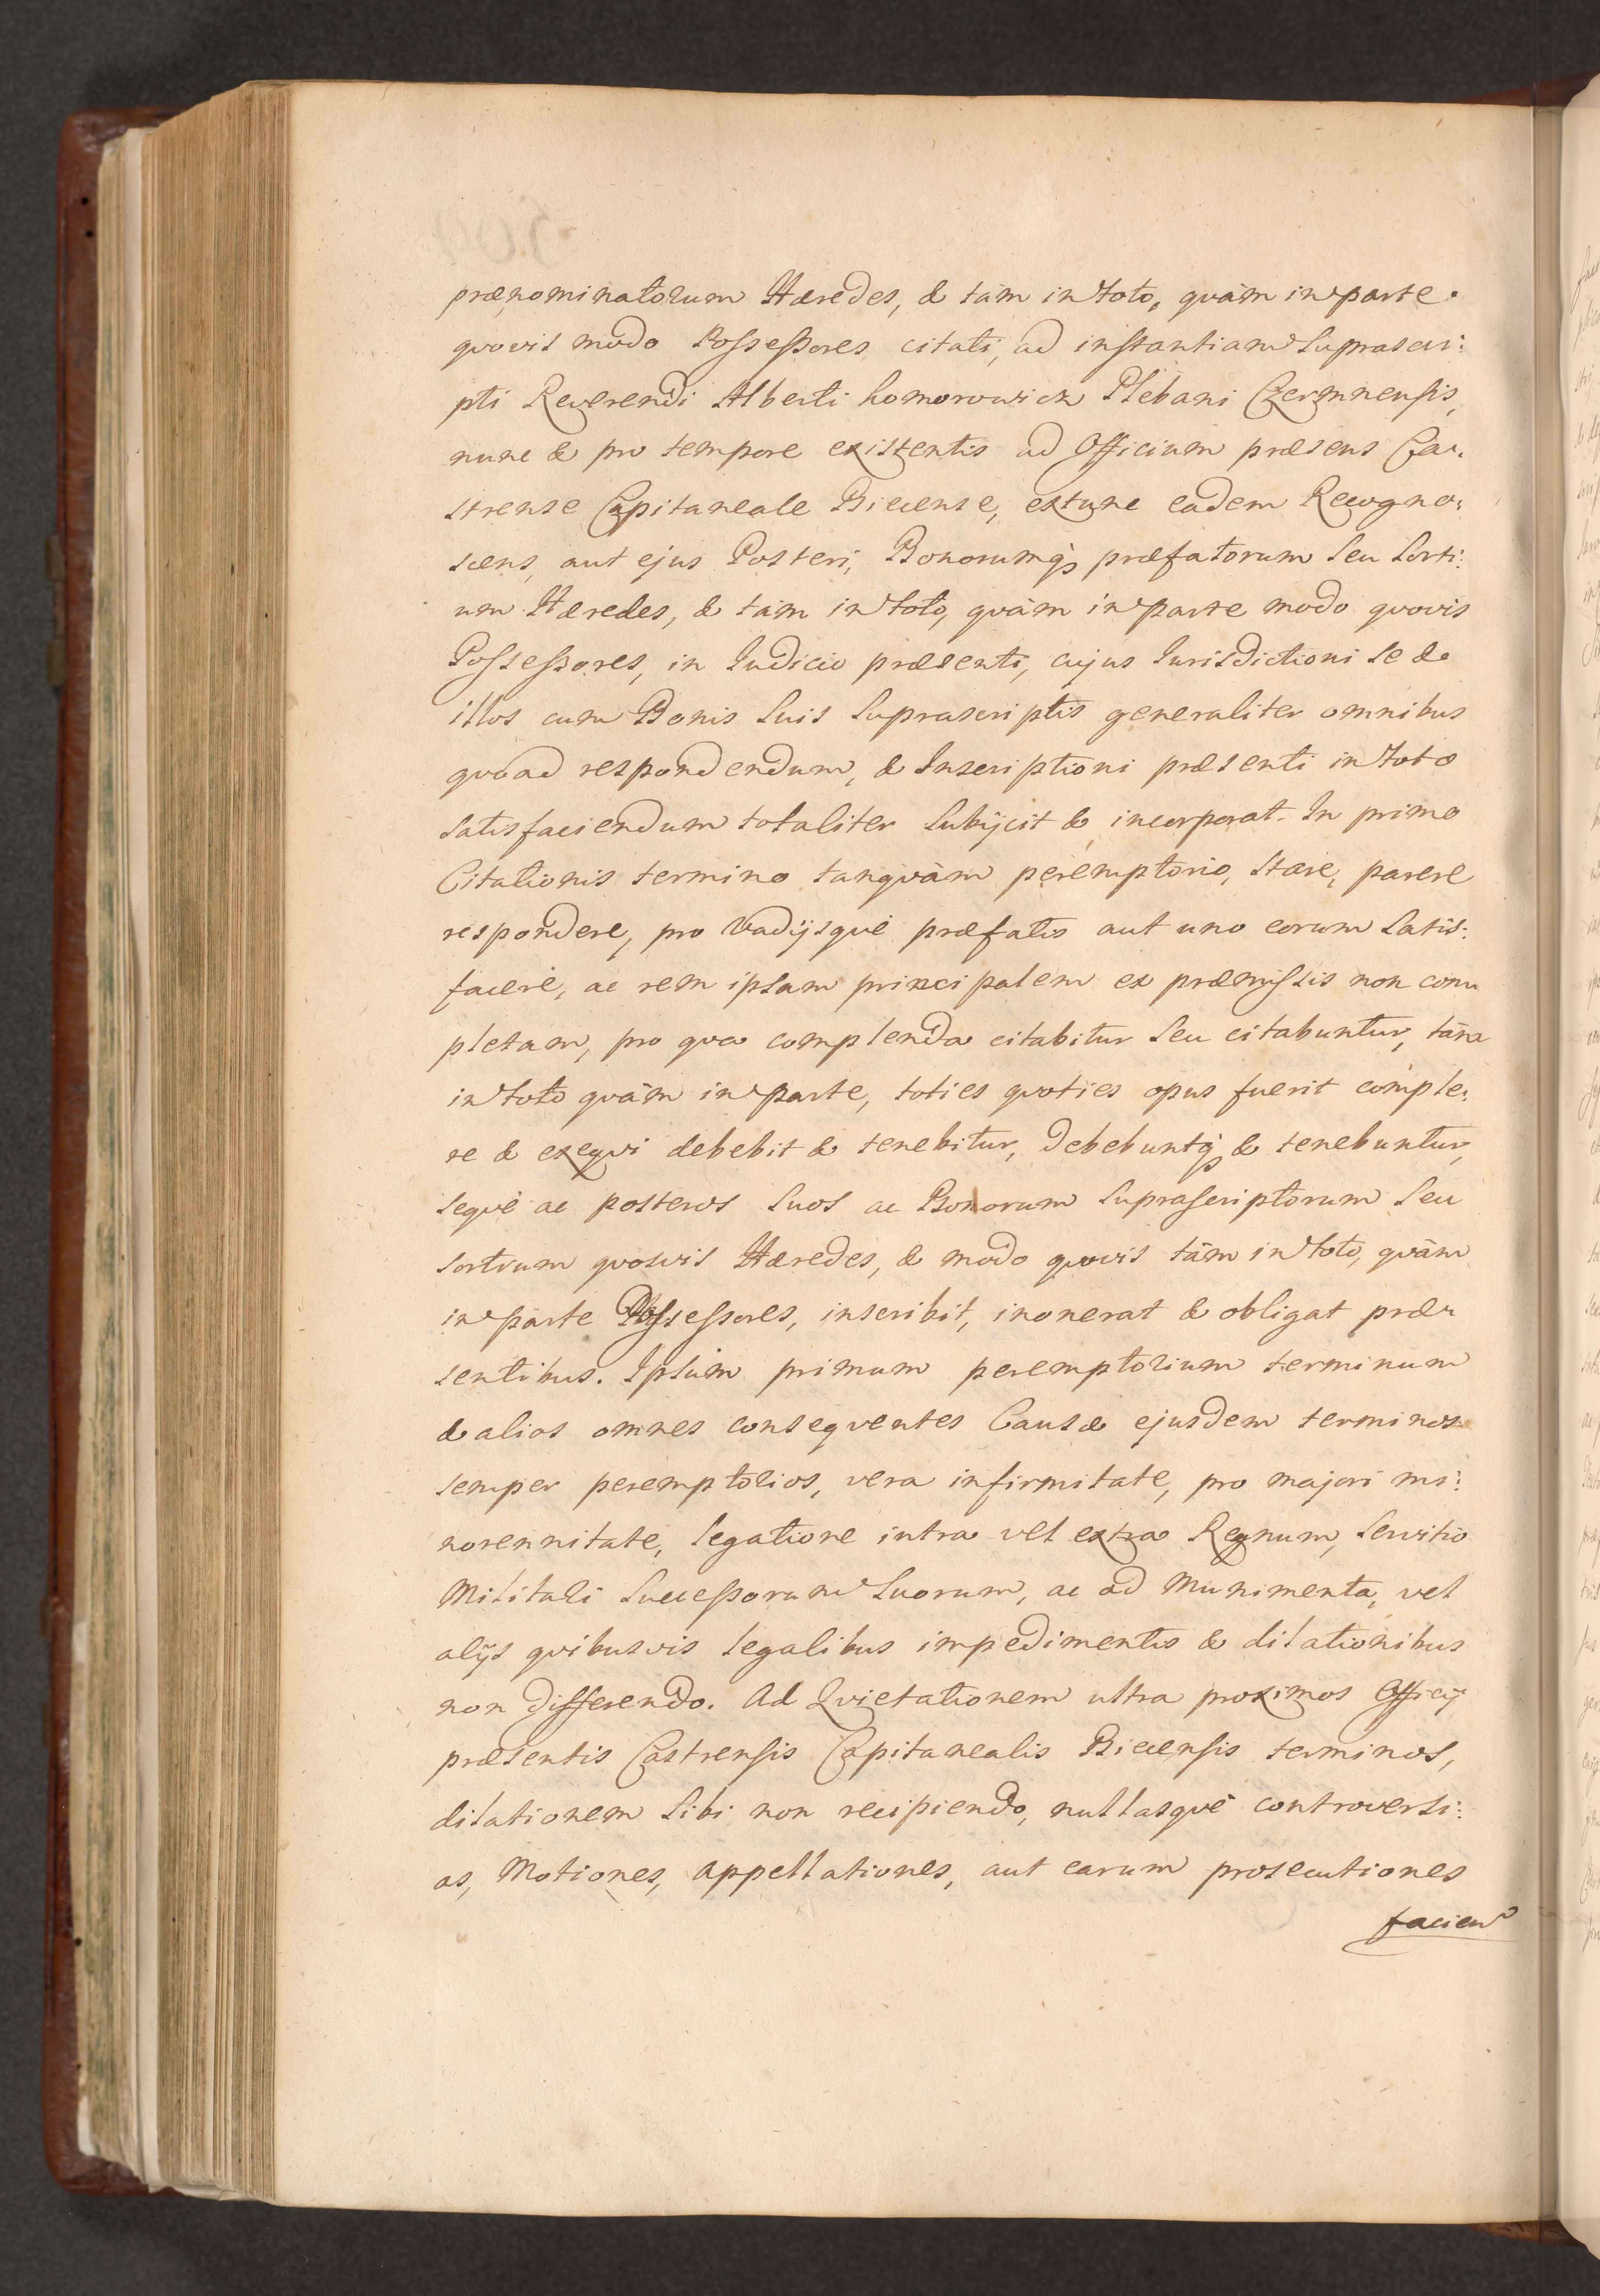 prænominatorum Hæredes, & tàm in toto, qvàm in parte
qvovis modo Possessores citati, ad instantiam Suprascri:
pti Reverendi Alberti Komorowicz Plebani Czermnensis,
nunc & pro tempore existentis ad Officium præsens Ca:
strense Capitaneale Biecense, extunc eadem Recogno:
scens, aut ejus Posteri, Bonorumq; præfatorum seu Sorti:
um Hæredes, & tàm in toto, qvàm in parte modo qvovis
Possessores, in Iudicio præsenti, cujus Iurisdictioni se &
illos cum Bonis suis Suprascriptis generaliter omnibus
qvoad respondendum, & Inscriptioni præsenti in toto
satisfaciendum totaliter subijcit & incorporat. In primo
Citationis termino tanqvàm peremptorio, stare, parere
respondere, pro Vadijsqvè præfatis aut uno eorum satis:
facere, ac rem ipsam principalem ex præmissis non com
pletam, pro qva complenda citabitur seu citabuntur, tàm
in toto qvàm in parte, toties qvoties opus fuerit comple:
re & exeqvi debebit & tenebitur, debebuntq; & tenebuntur,
seqvè ac posteros suos ac Bonorum Suprascriptorum seu
sortium qvosvis Hæredes, & modo qvovis tàm in toto, qvàm
in parte Possessores, inscribit, inonerat & obligat præ
sentibus. Ipsum primum peremptorium terminum
& alios omnes conseqventes Causæ ejusdem terminos
semper peremptorios, vera infirmitate, pro majori mi:
norennitate, legatione intra vel extra Regnum, servitio
Militari Successorum suorum, ac ad Munimenta, vel
alijs qvibusvis legalibus impedimentis & dilationibus
non differendo. Ad Qvietationem ultra proximos Officij
præsentis Castrensis Capitanealis Biecensis terminos,
dilationem sibi non recipiendo, nullasqvè controversi:
as, Motiones, appellationes, aut earum prosecutiones
facien